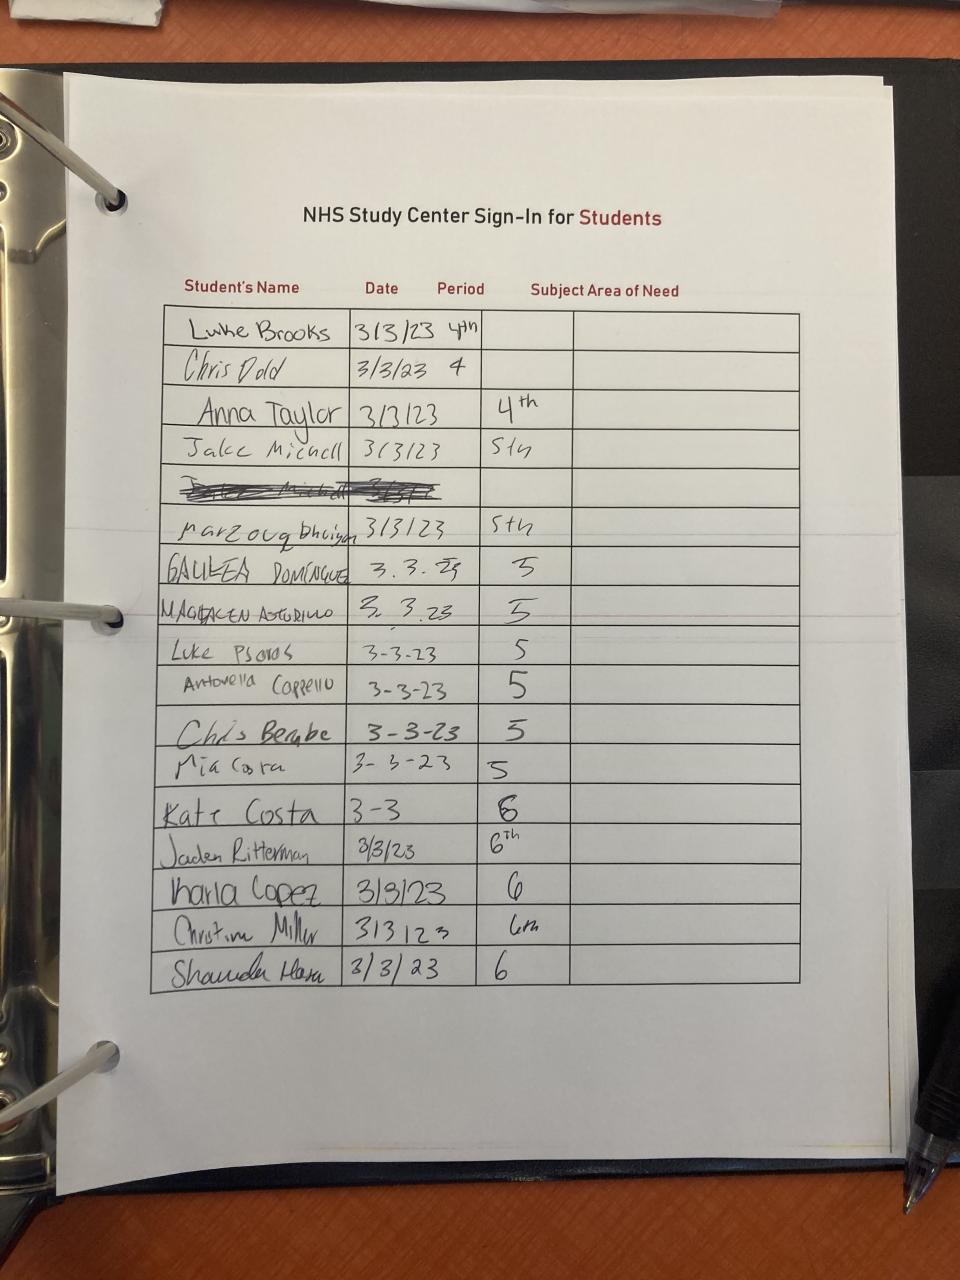 NHS Study Center Sign-In for Students
Student's Name Date Period Subject Area of Need
Luke Brooks 3/3/23 4th
Chris Dold 3/3/23 4
Anna Taylor 3/3/23 4th
Jake Michell 3/3/23 5th
Marzouq Bhuiyan 3/3/23 5th
GALILEA DOMINGUEZ 3.3.23 5
3.3.23 5
Luke Psaros 3-3-23 5
Antonella Coppello 3-3-23 5
Chris Berube 3-3-23 5
Mia 3-3-23 5
Kate Costa 3-3 6
Jaden Ritterman 3/3/23 6th
Karla Lopez 3/3/23 6
Christina Miller 3/3/23 6th
3/3/23 6